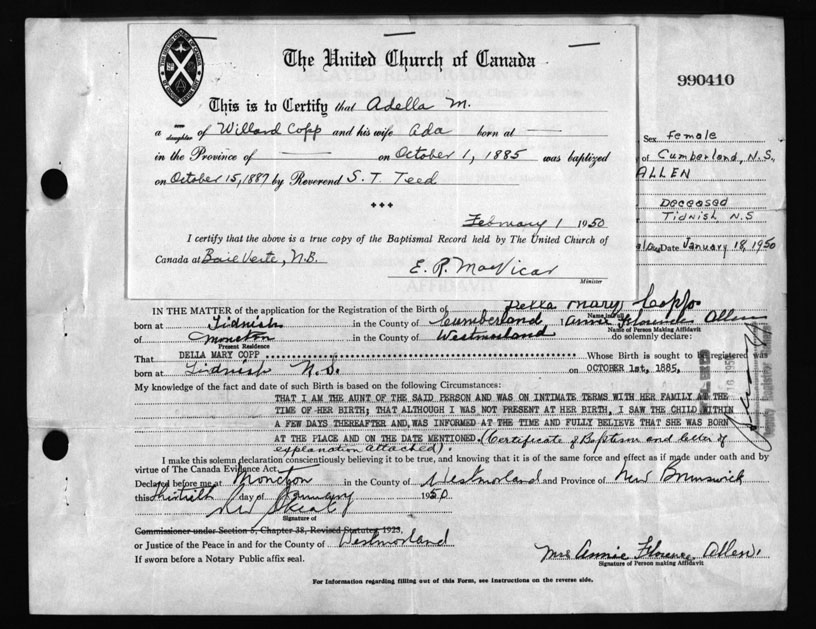 The United Church of Canada
990410
This is to Certify that Adella M.
a son daughter of Willard Copp and his wife Ada born at —
in the Province of — on October 1, 1885 was baptized
on October 15, 1887 by Reverend S. T. Teed
February 1 1950
I certify that the above is a true copy of the Baptismal Record held by The United Church of
Canada at Baie Verte, N.B.
E. R. MacVicar
Minister
Sex female
of Cumberland, N.S.,
ALLEN
Deceased
Tidnish, N.S
Date January 18, 1950
AFFIDAVIT
IN THE MATTER of the application for the Registration of the Birth of Della Mary Copp
Name in Full
born at Tidnish in the County of Cumberland I, Annie Florence Allen
Name of Person Making Affidavit
of Moncton in the County of Westmorland do solemnly declare:
Present Residence
That DELLA MARY COPP Whose Birth is sought to be registered was
born at Tidnish N.S. on OCTOBER 1st, 1885,
My knowledge of the fact and date of such Birth is based on the following Circumstances:
THAT I AM THE AUNT OF THE SAID PERSON AND WAS ON INTIMATE TERMS WITH HER FAMILY AT THE
TIME OF HER BIRTH; THAT ALTHOUGH I WAS NOT PRESENT AT HER BIRTH, I SAW THE CHILD WITHIN
A FEW DAYS THEREAFTER AND WAS INFORMED AT THE TIME AND FULLY BELIEVE THAT SHE WAS BORN
AT THE PLACE AND ON THE DATE MENTIONED. (Certificate of Baptism and letter of
explanation attached).
I make this solemn declaration conscientiously believing it to be true, and knowing that it is of the same force and effect as if made under oath and by
virtue of The Canada Evidence Act.
Declared before me at Moncton in the County of Westmorland and Province of New Brunswick
this thirtieth day of January 1950
Signature of
Commissioner under Section 5, Chapter 38, Revised Statutes 1923,
or Justice of the Peace in and for the County of Westmorland
If sworn before a Notary Public affix seal.
Mrs Annie Florence Allen.
Signature of Person making Affidavit
For Information regarding filling out of this Form, see Instructions on the reverse side.